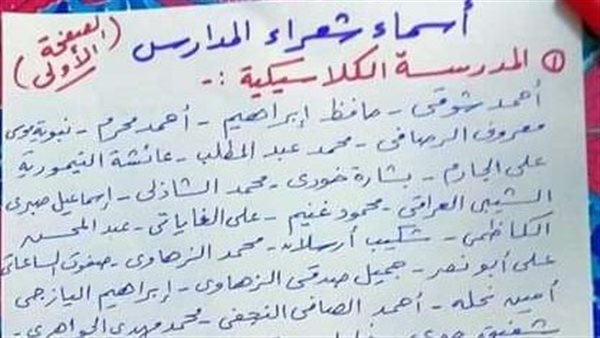 أسماء شعراء المدارس (الصفحة الأولى)
① المدرسة الكلاسيكية :-
أحمد شوقى - حافظ إبراهيم - أحمد محرم - نبوية موسى
معروف الرصافى - محمد عبد المطلب - عائشة التيمورية
على الجارم - بشارة خورى - محمد الشاذلى - إسماعيل صبرى
الشبيبى العراقى - محمود غنيم - على الغاياتى - عبد المحسن
الكاظمى - شكيب أرسلان - محمد الزهاوى - صفوت الساعاتى
على أبو نصر - جميل صدقى الزهاوى - إبراهيم اليازجى
أمين نخله - أحمد الصافى النجفى - محمد مهدى الجواهرى -